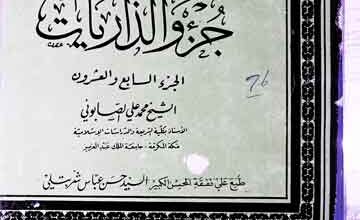 جزء والذاريات
الجزء السابع والعشرون
الشيخ محمد علي الصابوني
الأستاذ بكلية الشريعة والدراسات الإسلامية
مكة المكرمة - جامعة الملك عبد العزيز
76
طبع على نفقة المحسن الكبير السيد حسن عباس شربتلي